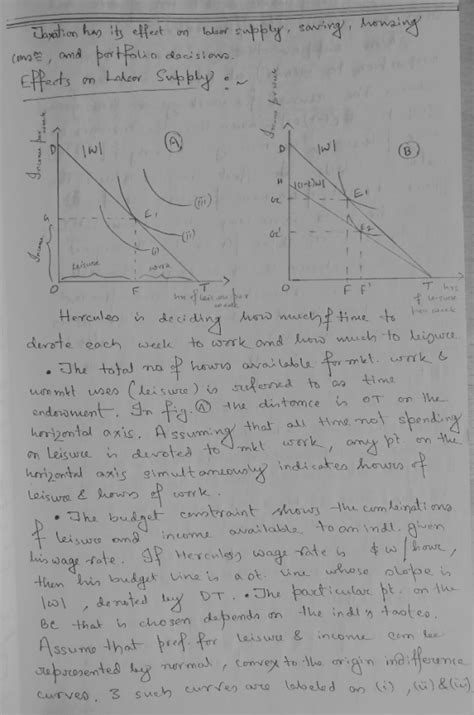 Taxation has its effect on labor supply, saving, housing
cons, and portfolio decisions.
Effects on Labor Supply : ~
Income per week
D
|W|
(A)
(iii)
E1
(ii)
(i)
G
Income
leisure
work
O
F
T
hrs of leisure per week
Income per week
D
|W|
(B)
H
|(1-t)W|
G
E1
G'
E2
O
F
F'
T
hrs of leisure per week
Hercules is deciding how much of time to
devote each week to work and how much to leisure
• The total no of hours available for mkt. work &
nonmkt uses (leisure) is referred to as time
endowment. In fig. (A) the distance is OT on the
horizontal axis. Assuming that all time not spending
on leisure is devoted to mkt work, any pt. on the
horizontal axis simultaneously indicates hours of
leisure & hours of work.
• The budget constraint shows the combinations
of leisure and income available to an indl. given
his wage rate. If Hercules wage rate is $ w/hour,
then his budget line is a st. line whose slope is
|W|, denoted by DT. • The particular pt. on the
BC that is chosen depends on the indl's tastes.
Assume that pref. for leisure & income can be
represented by normal, convex to the origin indifference
curves. 3 such curves are labeled as (i), (ii) & (iii)